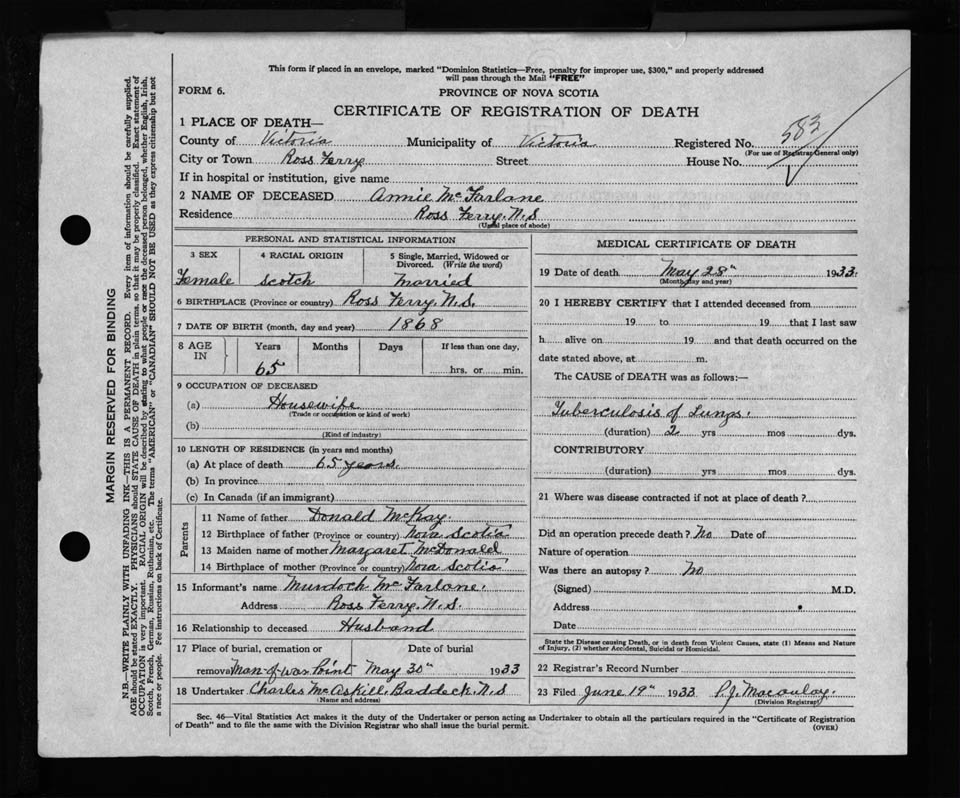 This form if placed in an envelope, marked "Dominion Statistics—Free, penalty for improper use, $300," and properly addressed
will pass through the Mail "FREE"
FORM 6.
PROVINCE OF NOVA SCOTIA
CERTIFICATE OF REGISTRATION OF DEATH
1 PLACE OF DEATH—
583
County of Victoria Municipality of Victoria Registered No.
(For use of Registrar General only)
City or Town Ross Ferry Street House No.
If in hospital or institution, give name
2 NAME OF DECEASED Annie McFarlane
Residence Ross Ferry, N.S
(Usual place of abode)
PERSONAL AND STATISTICAL INFORMATION
3 SEX 4 RACIAL ORIGIN 5 Single, Married, Widowed or
Divorced. (Write the word)
Female Scotch Married
6 BIRTHPLACE (Province or country) Ross Ferry, N.S.
7 DATE OF BIRTH (month, day and year) 1868
8 AGE IN Years Months Days If less than one day,
65 hrs. or min.
9 OCCUPATION OF DECEASED
(a) Housewife
(Trade or occupation or kind of work)
(b)
(Kind of industry)
10 LENGTH OF RESIDENCE (in years and months)
(a) At place of death 65 years.
(b) In province
(c) In Canada (if an immigrant)
Parents
11 Name of father Donald McKay.
12 Birthplace of father (Province or country) Nova Scotia
13 Maiden name of mother Margaret McDonald
14 Birthplace of mother (Province or country) Nova Scotia
15 Informant's name Murdoch McFarlane.
Address Ross Ferry, N.S.
16 Relationship to deceased Husband
17 Place of burial, cremation or Date of burial
removal Man-of-war Point May 30" 1933
18 Undertaker Charles McAskill, Baddeck, N.S
(Name and address)
MEDICAL CERTIFICATE OF DEATH
19 Date of death May 28" 1933.
(Month, day and year)
20 I HEREBY CERTIFY that I attended deceased from
19 to 19 that I last saw
h alive on 19 and that death occurred on the
date stated above, at m.
The CAUSE of DEATH was as follows:—
Tuberculosis of Lungs.
(duration) 2 yrs mos dys.
CONTRIBUTORY
(duration) yrs mos dys.
21 Where was disease contracted if not at place of death ?
Did an operation precede death ? No Date of
Nature of operation
Was there an autopsy ? No
(Signed) M.D.
Address
Date
State the Disease causing Death, or in death from Violent Causes, state (1) Means and Nature
of Injury, (2) whether Accidental, Suicidal or Homicidal.
22 Registrar's Record Number
23 Filed June 19" 1933 P.J. Macaulay.
(Division Registrar)
Sec. 46—Vital Statistics Act makes it the duty of the Undertaker or person acting as Undertaker to obtain all the particulars required in the "Certificate of Registration
of Death" and to file the same with the Division Registrar who shall issue the burial permit.
(OVER)
MARGIN RESERVED FOR BINDING
N.B.—WRITE PLAINLY WITH UNFADING INK—THIS IS A PERMANENT RECORD. Every item of information should be carefully supplied.
AGE should be stated EXACTLY. PHYSICIANS should STATE CAUSE OF DEATH in plain terms, so that it may be properly classified. Exact statement of
OCCUPATION is very important. RACIAL ORIGIN will be described by stating to what people or race the deceased person belonged, whether English, Irish,
Scotch, French, German, Russian, Ruthenian, etc. The terms "AMERICAN" or "CANADIAN" SHOULD NOT BE USED as they express citizenship but not
a race or people. Fee instructions on back of Certificate.